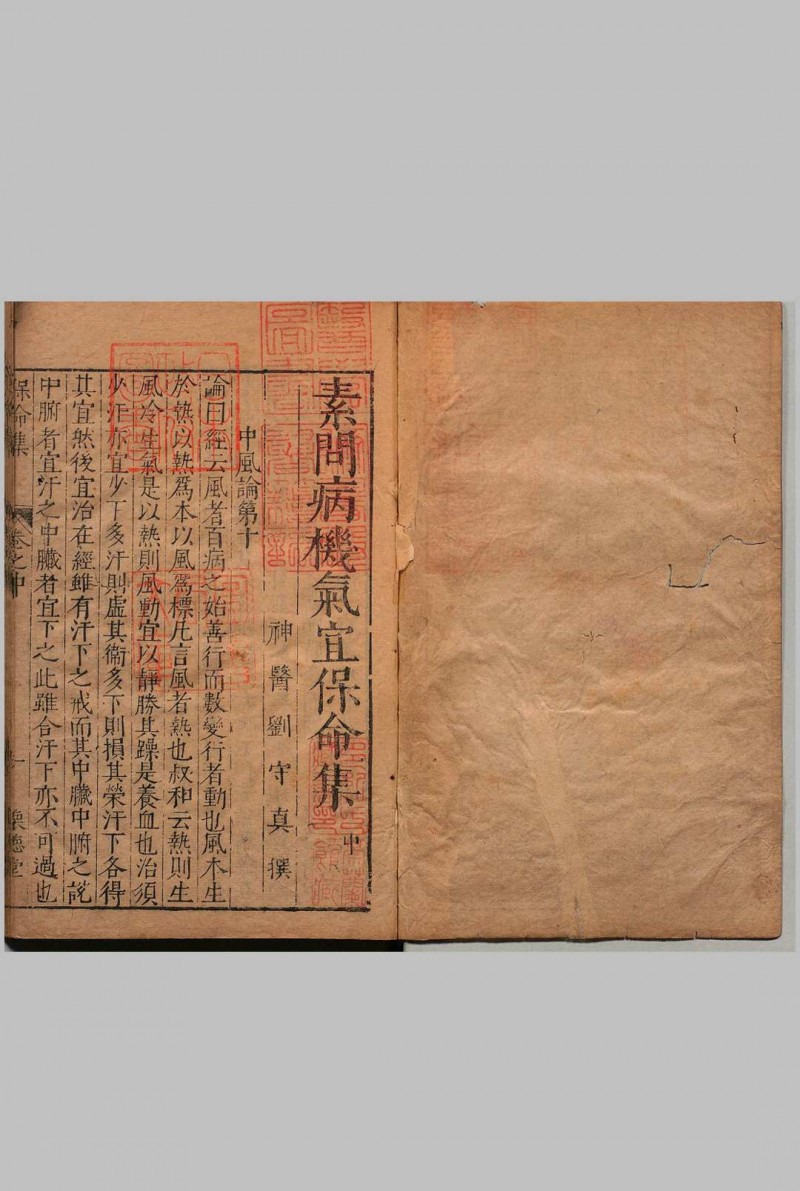 素問病機氣宜保命集中
神醫劉守真撰
中風論第十
論曰經云風者百病之始善行而數變行者動也風木生
於熱以熱爲本以風爲標凡言風者熱也叔和云熱則生
風冷生氣是以熱則風動宜以靜勝其躁是養血也治須
少汗亦宜少下多汗則虛其衞多下則損其榮汗下各得
其宜然後宜治在經雖有汗下之戒而其中臟中腑之説
中腑者宜汗之中臟者宜下之此雖合汗下亦不可過也
保命集 卷之中 一 懷德堂